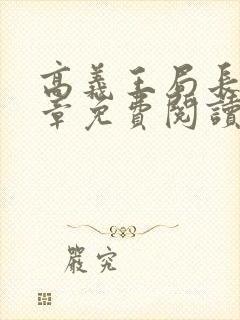 高義王局長
章免費閱讀
嚴究